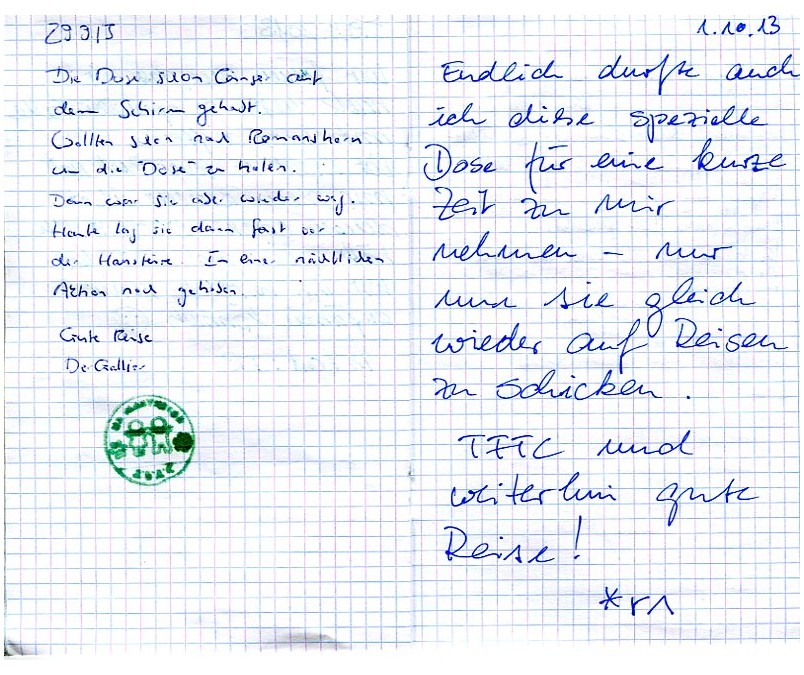 29.9.13
Die Dose schon länger auf
dem Schirm gehabt.
Wollten schon nach Romanshorn
um die "Dose" zu holen.
Dann war sie aber wieder weg.
Heute lag sie dann fast vor
der Haustüre. In einer nächtlichen
Aktion noch gehoben.
Gute Reise
1.10.13
Endlich durfte auch
ich diese spezielle
Dose für eine kurze
Zeit zu mir
nehmen – nur
um sie gleich
wieder auf Reisen
zu schicken.
TFTC und
weiterhin gute
Reise!